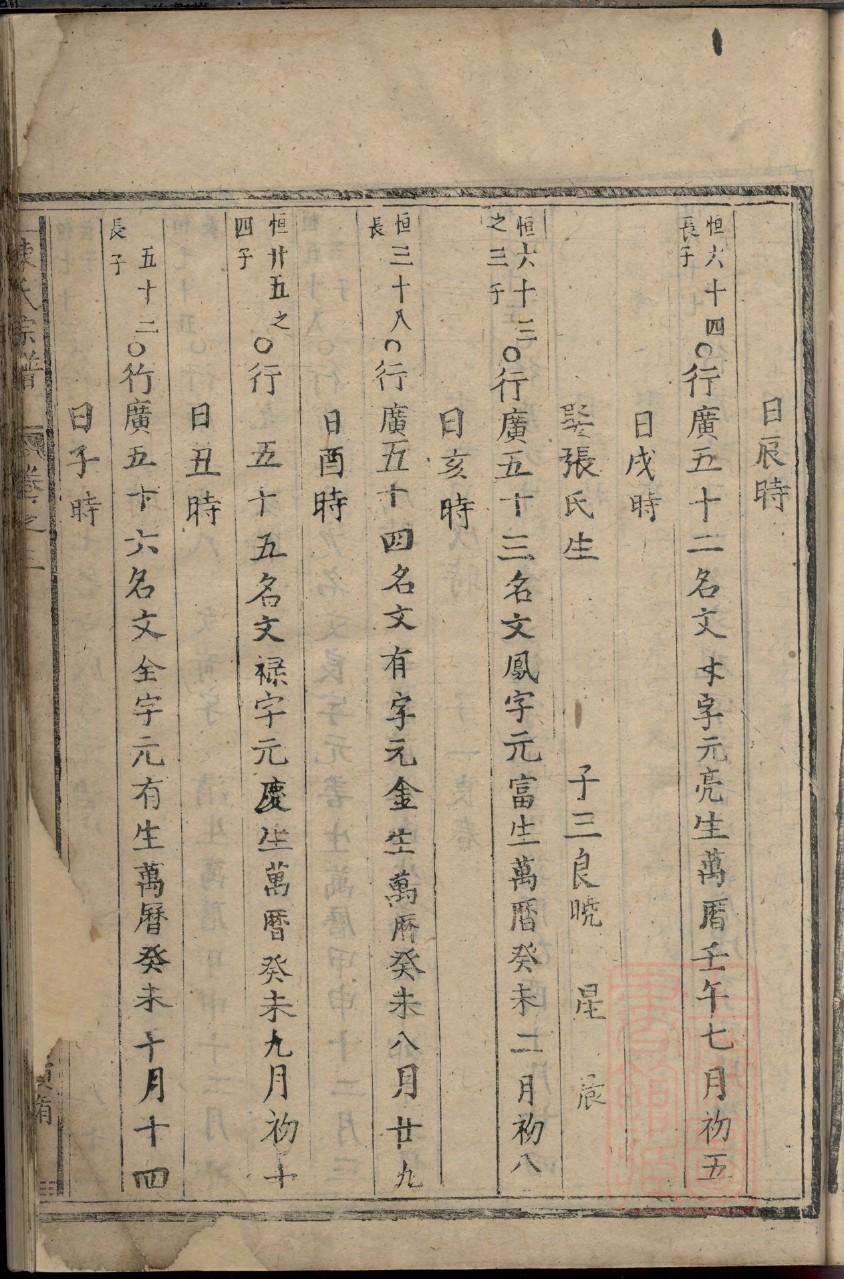 日辰時
恒六十四長子○行廣五十二名文才字元亮生萬曆壬午七月初五
日戌時
娶張氏生 子三良曉 星 辰
恒六十三之三子○行廣五十三名文鳳字元富生萬曆癸未二月初八
日亥時
恒三十八長○行廣五十四名文有字元金生萬曆癸未八月廿九
日酉時
恒廿五之四子○行 五十五名文祿字元慶生萬曆癸未九月初十
日丑時
五十二長子○行廣五十六名文全字元有生萬曆癸未十月十四
日子時
陳氏宗譜 卷之二